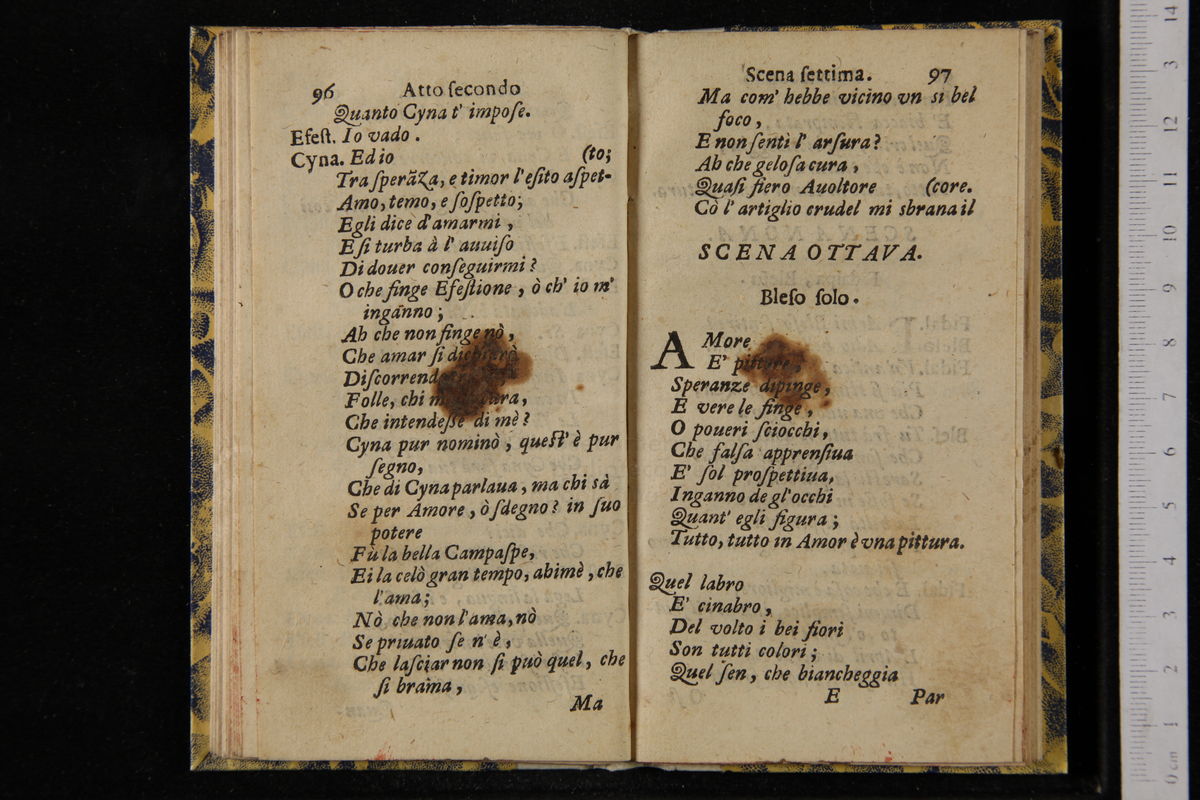 96 Atto ſecondo
Quanto Cyna t' impoſe.
Efeſt. Io vado.
Cyna. Ed io (to;
Tra ſperãza, e timor l'eſito aſpet-
Amo, temo, e ſoſpetto;
Egli dice d'amarmi,
E ſi turba à l' auuiſo
Di douer conſeguirmi?
O che finge Efeſtione, ò ch' io m'
inganno;
Ah che non finge nò,
Che amar ſi
Diſcorrend
Folle, chi
Che intendeſſe di mè?
Cyna pur nominò, queſt' è pur
ſegno,
Che di Cyna parlaua, ma chi sà
Se per Amore, ò ſdegno? in ſuo
potere
Fù la bella Campaſpe,
Ei la celò gran tempo, ahimè, che
l'ama;
Nò che non l'ama, nò
Se priuato ſe n' è,
Che laſciar non ſi può quel, che
ſi brama,
Ma
Scena ſettima. 97
Ma com' hebbe vicino vn sì bel
foco,
E non ſentì l' arſura?
Ah che geloſa cura,
Quaſi fiero Auoltore (core.
Cò l' artiglio crudel mi sbrana il
SCENA OTTAVA.
Bleſo ſolo.
AMore
E' pittore,
Speranze dipinge,
E vere le finge,
O poueri ſciocchi,
Che falſa apprenſiua
E' ſol proſpettiua,
Inganno de gl'occhi
Quant' egli figura;
Tutto, tutto in Amor è vna pittura.
Quel labro
E' cinabro,
Del volto i bei fiori
Son tutti colori;
Quel ſen, che biancheggia
E Par
14
13
12
11
10
9
8
7
6
5
4
3
2
1
0 cm